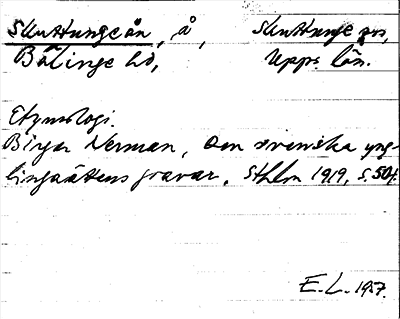 Skuttungeån, å, Skuttunge sn,
Bälinge hd, Upps. län.
Etymologi.
Birger Nerman, Den svenska yng-
lingaättens gravar, Sthlm 1919, s. 504.
E. L. 1957.